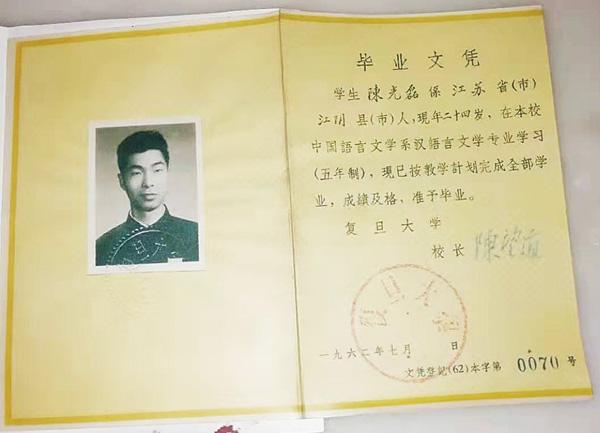 毕业文凭
学生陳光磊係江苏省(市)
江阴县(市)人,現年二十四岁,在本校
中国語言文学系汉語言文学专业学习
(五年制),現已按教学計划完成全部学
业,成績及格,准予毕业。
复旦大学
校长 陳望道
復旦大学
一九六二年七月 日
文凭登記(62)本字第 0070 号